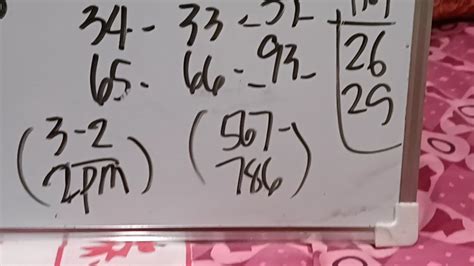 34 - 33 -
65 - 66 - 93 -
26
29
(3-2
2pm)
(567-
786)